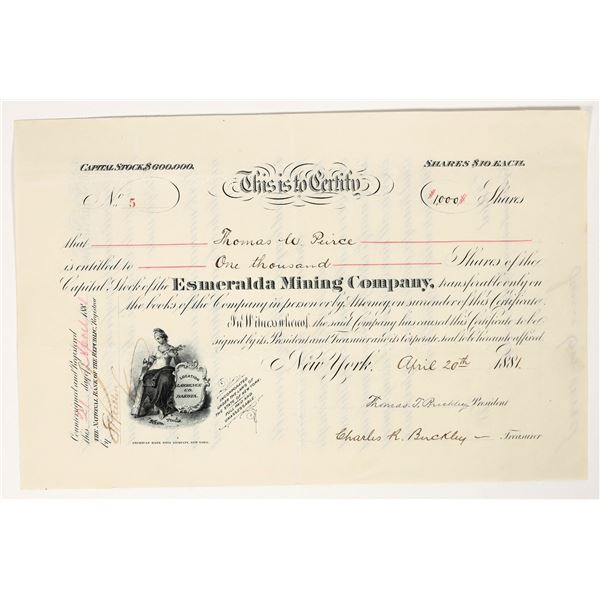 CAPITAL STOCK, $600,000.
SHARES $10 EACH.
No. 5
This is to Certify
$1,000$ Shares
that Thomas W. Peirce
is entitled to One thousand Shares of the
Capital Stock of the Esmeralda Mining Company, transferable only on
the books of the Company in person or by Attorney, on surrender of this Certificate.
In Witness whereof, the said Company has caused this Certificate to be
signed by its President and Treasurer and its Corporate seal to be hereunto affixed.
New York, April 20th 1881.
Thomas T. Buckley President
Charles R. Buckley Treasurer
Countersigned and Registered
this day of April 188
THE NATIONAL BANK OF THE REPUBLIC, Register
by
LOCATION
LAWRENCE
CO.
DAKOTA.
AMERICAN BANK NOTE COMPANY, NEW YORK.